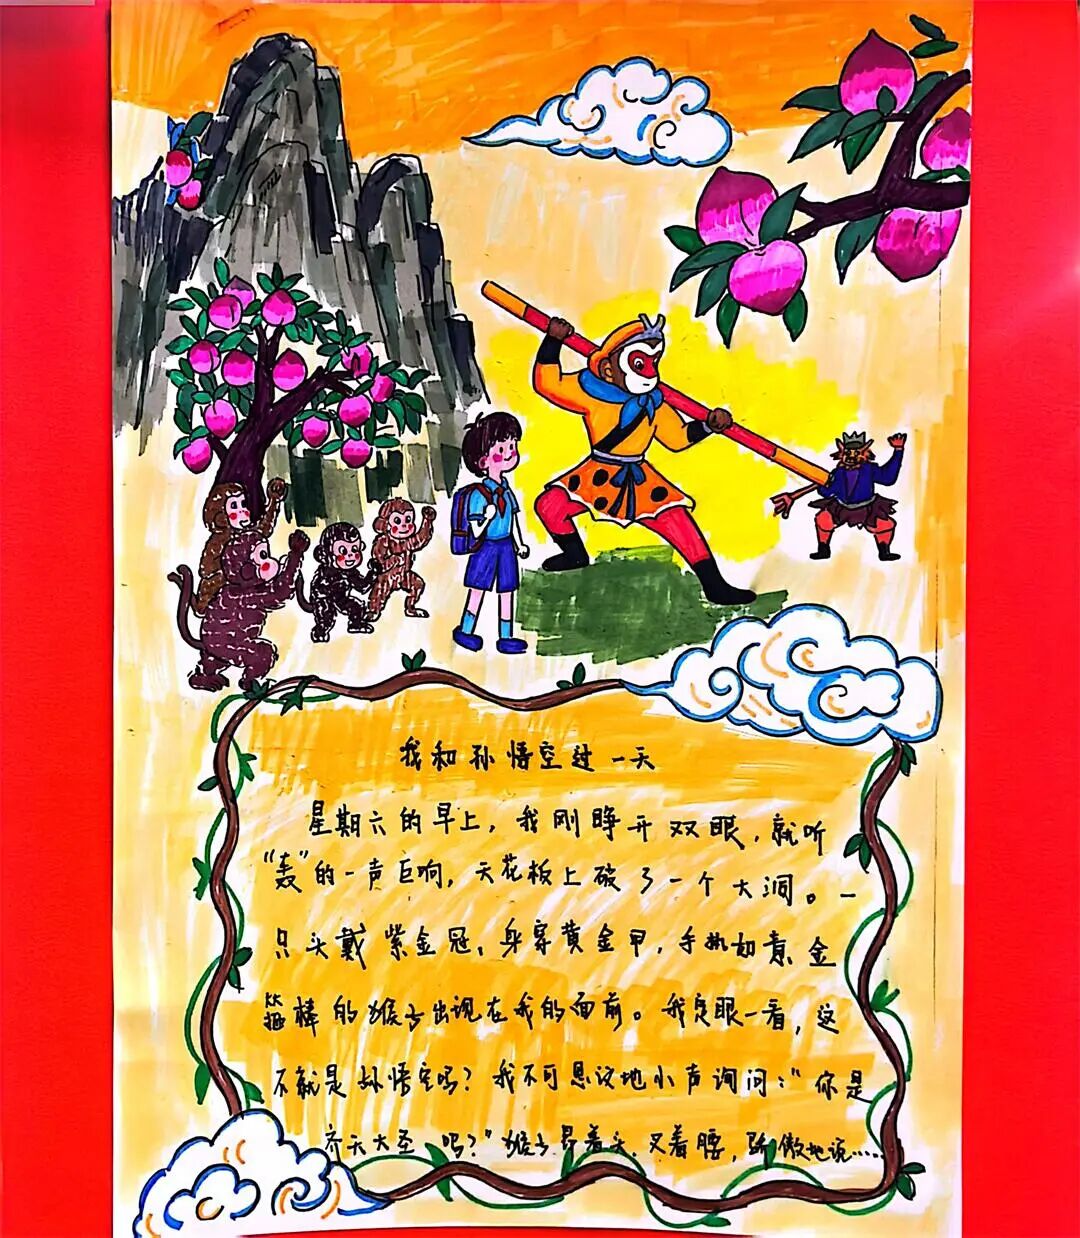 我和孙悟空过一天
星期六的早上，我刚睁开双眼，就听
“轰”的一声巨响，天花板上破了一个大洞。一
只头戴紫金冠，身穿黄金甲，手执如意金
箍棒的猴子出现在我的面前。我定眼一看，这
不就是孙悟空吗？我不可思议地小声询问：“你是
齐天大圣吗？”猴子昂着头，叉着腰，骄傲地说……